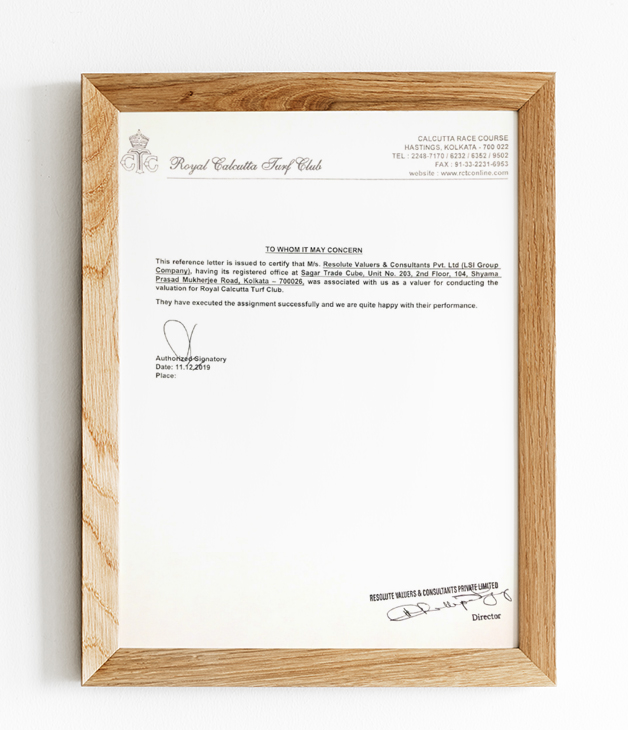 CTC
Royal Calcutta Turf Club
CALCUTTA RACE COURSE
HASTINGS, KOLKATA - 700 022
TEL : 2248-7170 / 6232 / 6352 / 9502
FAX : 91-33-2231-6953
website : www.rctconline.com
TO WHOM IT MAY CONCERN
This reference letter is issued to certify that M/s. Resolute Valuers & Consultants Pvt. Ltd (LSI Group
Company), having its registered office at Sagar Trade Cube, Unit No. 203, 2nd Floor, 104, Shyama
Prasad Mukherjee Road, Kolkata – 700026, was associated with us as a valuer for conducting the
valuation for Royal Calcutta Turf Club.
They have executed the assignment successfully and we are quite happy with their performance.
Authorized Signatory
Date: 11.12.2019
Place:
RESOLUTE VALUERS & CONSULTANTS PRIVATE LIMITED
Director